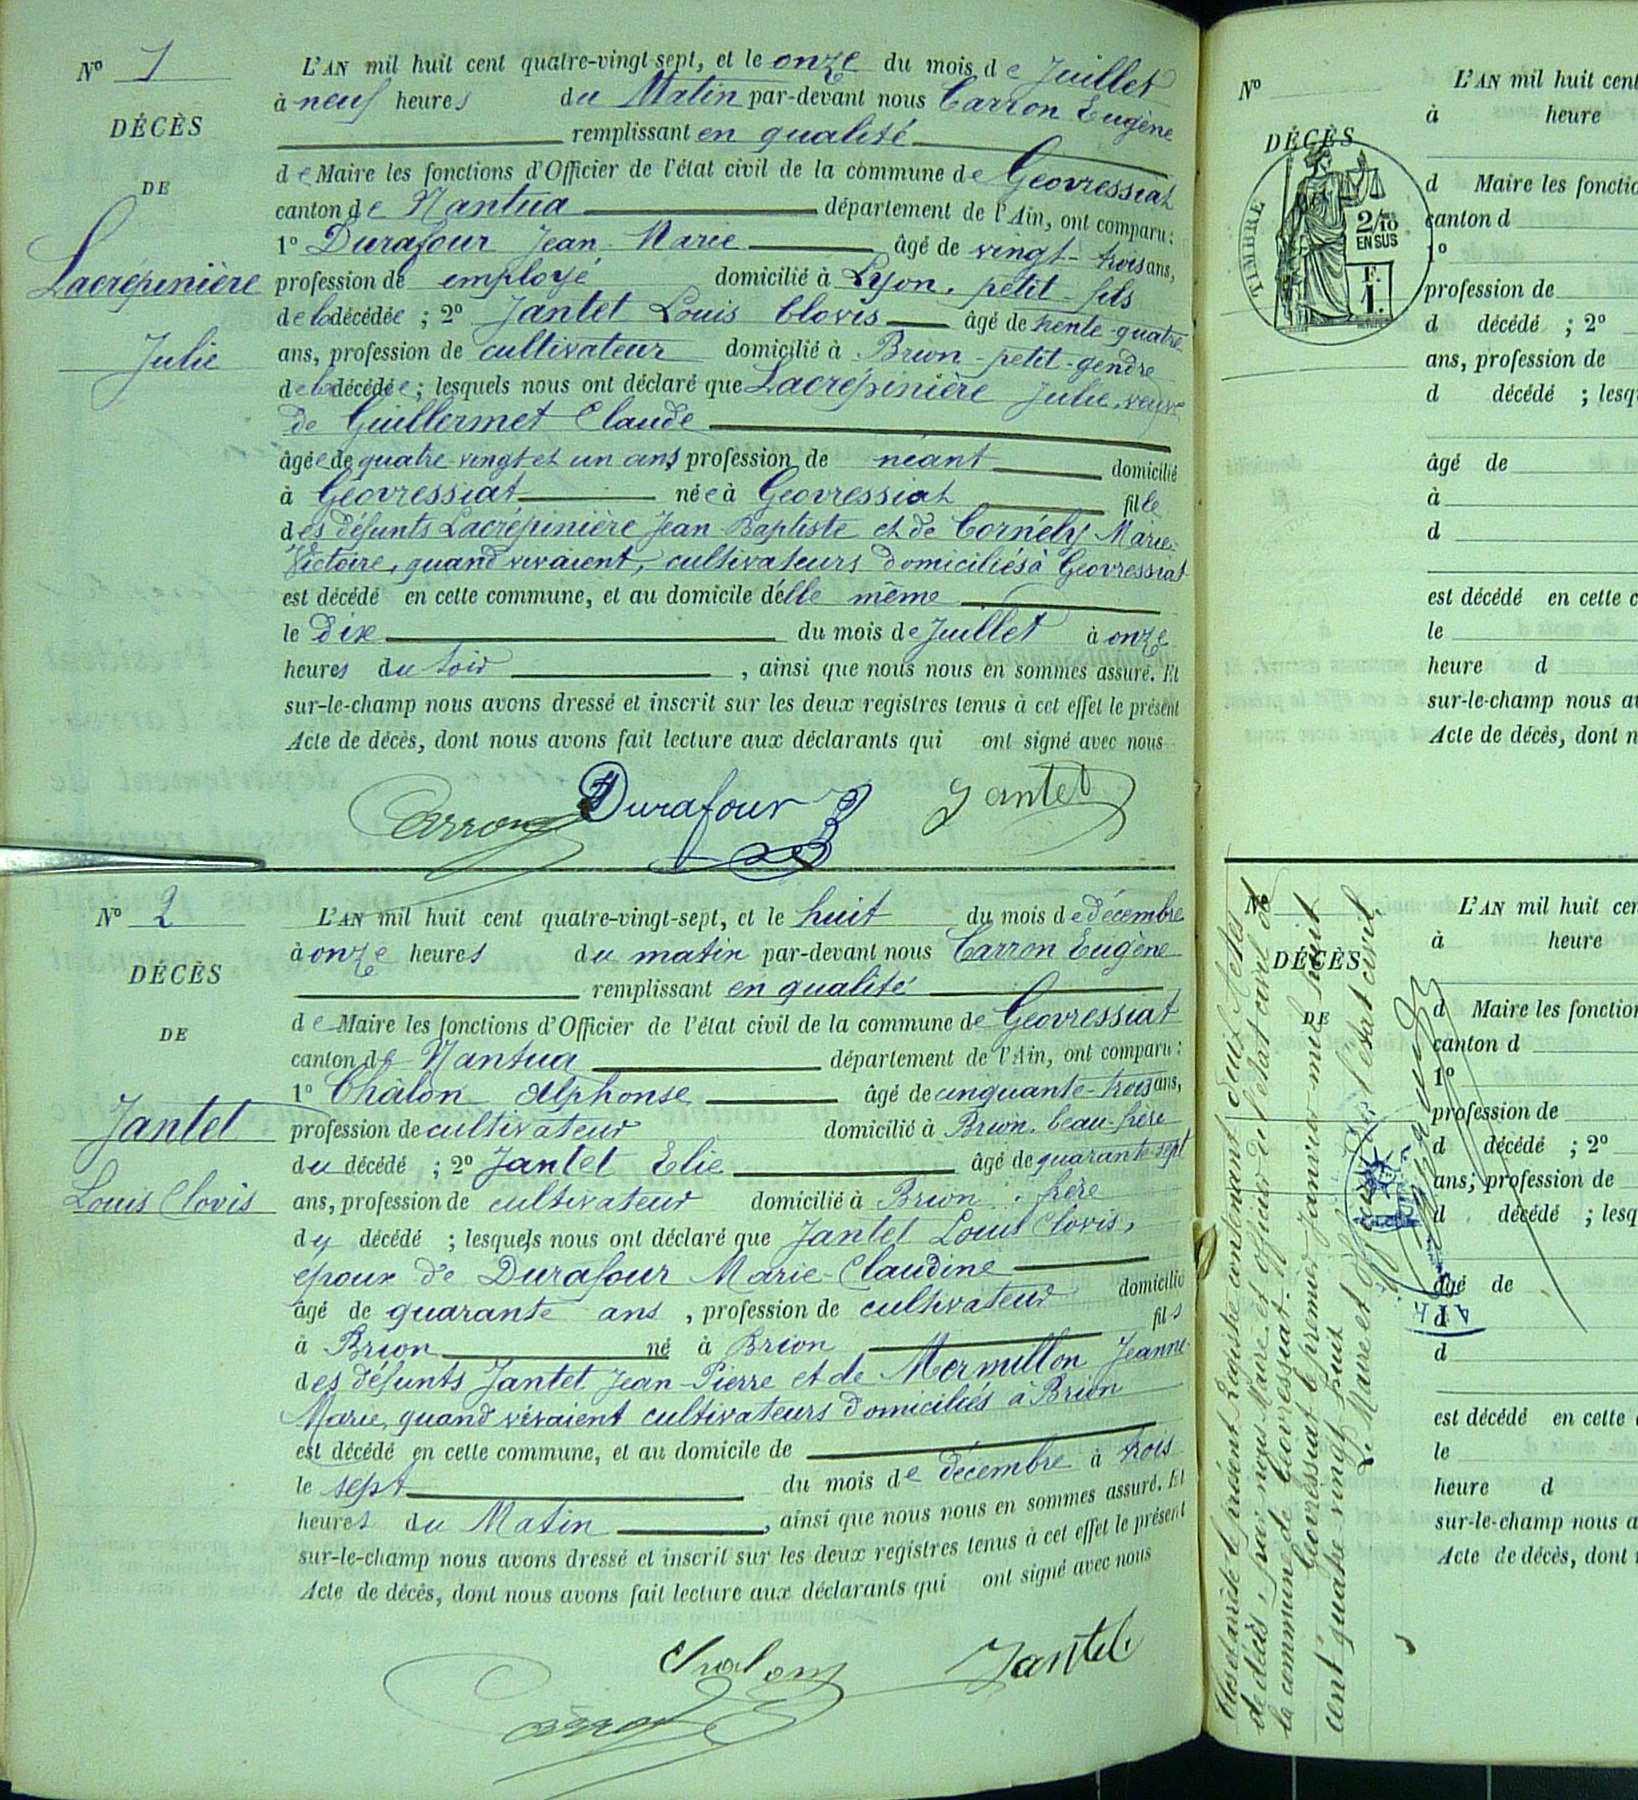 N° 1
DÉCÈS
DE
Lacrépinière
Julie
L'AN mil huit cent quatre-vingt-sept, et le onze du mois de Juillet
à neuf heures du Matin par-devant nous Carron Eugène
remplissant en qualité
de Maire les fonctions d'Officier de l'état civil de la commune de Geovressiat
canton de Nantua département de l'Ain, ont comparu :
1° Durafour Jean Marie âgé de vingt-trois ans,
profession de employé domicilié à Lyon, petit-fils
de la décédée ; 2° Jantet Louis Clovis âgé de trente-quatre
ans, profession de cultivateur domicilié à Brion - petit-gendre
de la décédée ; lesquels nous ont déclaré que Lacrépinière Julie, veuve
de Guillermet Claude
âgée de quatre-vingt et un ans profession de néant domicilié
à Geovressiat née à Geovressiat fille
des défunts Lacrépinière Jean-Baptiste et de Cornély Marie-
Victoire, quand vivaient, cultivateurs domiciliés à Geovressiat
est décédé en cette commune, et au domicile d'elle même
le dix du mois de Juillet à onze
heures du soir , ainsi que nous nous en sommes assuré. Et
sur-le-champ nous avons dressé et inscrit sur les deux registres tenus à cet effet le présent
Acte de décès, dont nous avons fait lecture aux déclarants qui ont signé avec nous
Carron Durafour Jantet
N° 2
DÉCÈS
DE
Jantet
Louis Clovis
L'AN mil huit cent quatre-vingt-sept, et le huit du mois de décembre
à onze heures du matin par-devant nous Carron Eugène
remplissant en qualité
de Maire les fonctions d'Officier de l'état civil de la commune de Geovressiat
canton de Nantua département de l'Ain, ont comparu :
1° Châlon Alphonse âgé de cinquante-trois ans,
profession de cultivateur domicilié à Brion, beau-frère
du décédé ; 2° Jantet Elie âgé de quarante-sept
ans, profession de cultivateur domicilié à Brion, frère
du décédé ; lesquels nous ont déclaré que Jantet Louis Clovis,
époux de Durafour Marie-Claudine
âgé de quarante ans , profession de cultivateur domicilié
à Brion né à Brion fils
des défunts Jantet Jean-Pierre et de Mermillon Jeanne-
Marie, quand vivaient cultivateurs domiciliés à Brion
est décédé en cette commune, et au domicile de
le sept du mois de décembre à trois
heures du Matin , ainsi que nous nous en sommes assuré. Et
sur-le-champ nous avons dressé et inscrit sur les deux registres tenus à cet effet le présent
Acte de décès, dont nous avons fait lecture aux déclarants qui ont signé avec nous
Chalon Jantet
Carron
N°
DÉCÈS
TIMBRE
2/10
EN SUS
F.
1.
L'AN mil huit cent
à heure
d Maire les fonctio
canton d
1°
profession de
d décédé ; 2°
ans, profession de
d décédé ; lesq
âgé de
à
d
est décédé en cette c
le
heure d
sur-le-champ nous a
Acte de décès, dont n
N°
DÉCÈS
DE
L'AN mil huit cen
à heure
d Maire les fonction
canton d
1°
profession de
d décédé ; 2°
ans, profession de
d décédé ; lesq
âgé de
d
est décédé en cette
le
heure d
sur-le-champ nous a
Acte de décès, dont
Clos et arrêté le présent Registre contenant deux Actes
de décès, par nous Maire et officier de l'état civil de
la commune de Geovressiat.
Geovressiat le premier Janvier mil huit
cent quatre-vingt huit
Le Maire et officier de l'état civil,